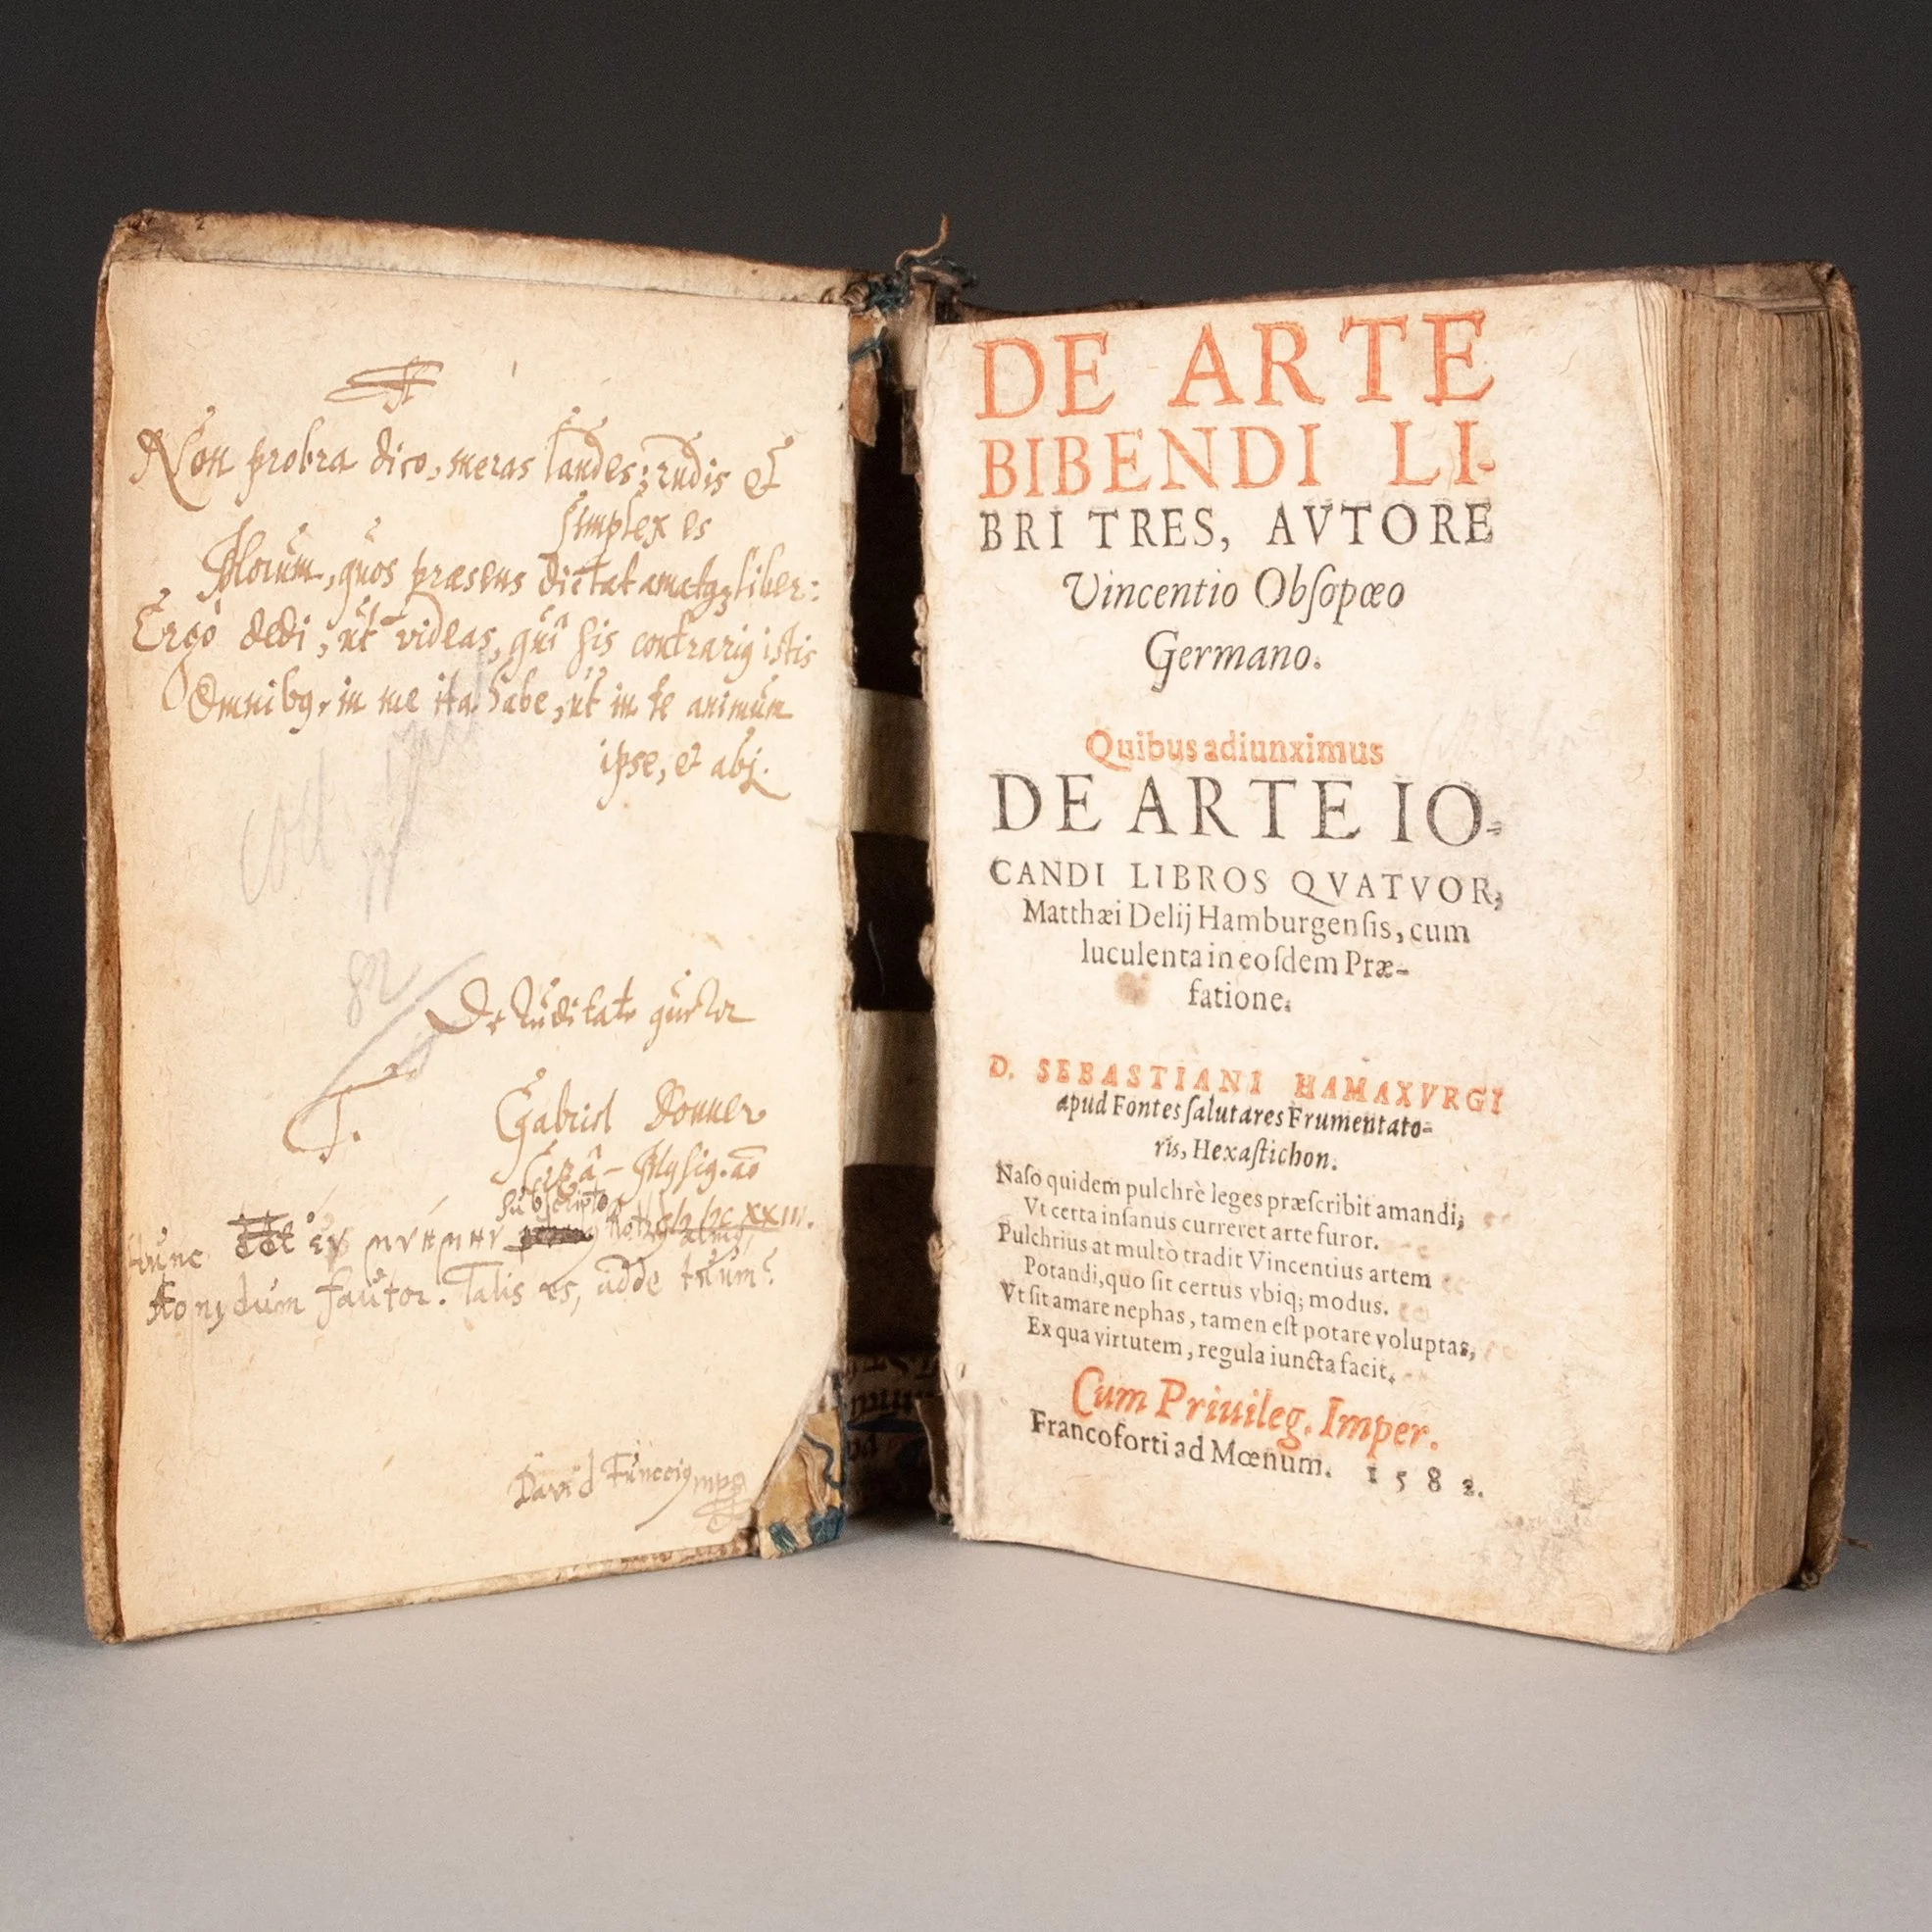 Non probra dico, meras laudes; rudis et
simplex es
Morum, quos præsens dictat amatq; liber:
Ergò dedi, ut videas, quî sis contrariq istis
Omnibq, in me ita habe, ut in te animum
ipse, et abj.
82
T.
Gabriel Donner
subscripto
hunc
fautor. Talis es, adde tuum
David Funcciq mpp
DE ARTE
BIBENDI LI-
BRI TRES, AVTORE
Vincentio Obſopœo
Germano.
Quibus adiunximus
DE ARTE IO-
CANDI LIBROS QVATVOR,
Matthæi Delij Hamburgenſis, cum
luculenta in eoſdem Præ-
fatione.
D. SEBASTIANI HAMAXVRGI
apud Fontes ſalutares Frumentato-
ris, Hexaſtichon.
Naſo quidem pulchrè leges præſcribit amandi,
Vt certa inſanus curreret arte furor.
Pulchrius at multò tradit Vincentius artem
Potandi, quo ſit certus vbiq; modus.
Vt ſit amare nephas, tamen eſt potare voluptas,
Ex qua virtutem, regula iuncta facit.
Cum Priuileg. Imper.
Francoforti ad Mœnum. 1582.